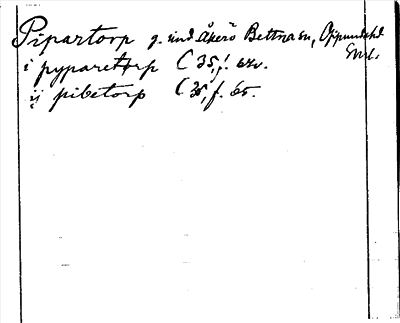 Pipartorp g. und Åkerö Bettna sn, Oppundahd
Sml.
i pyparetorp C 35, f. 62v.
ij pibetorp C 35, f. 65.